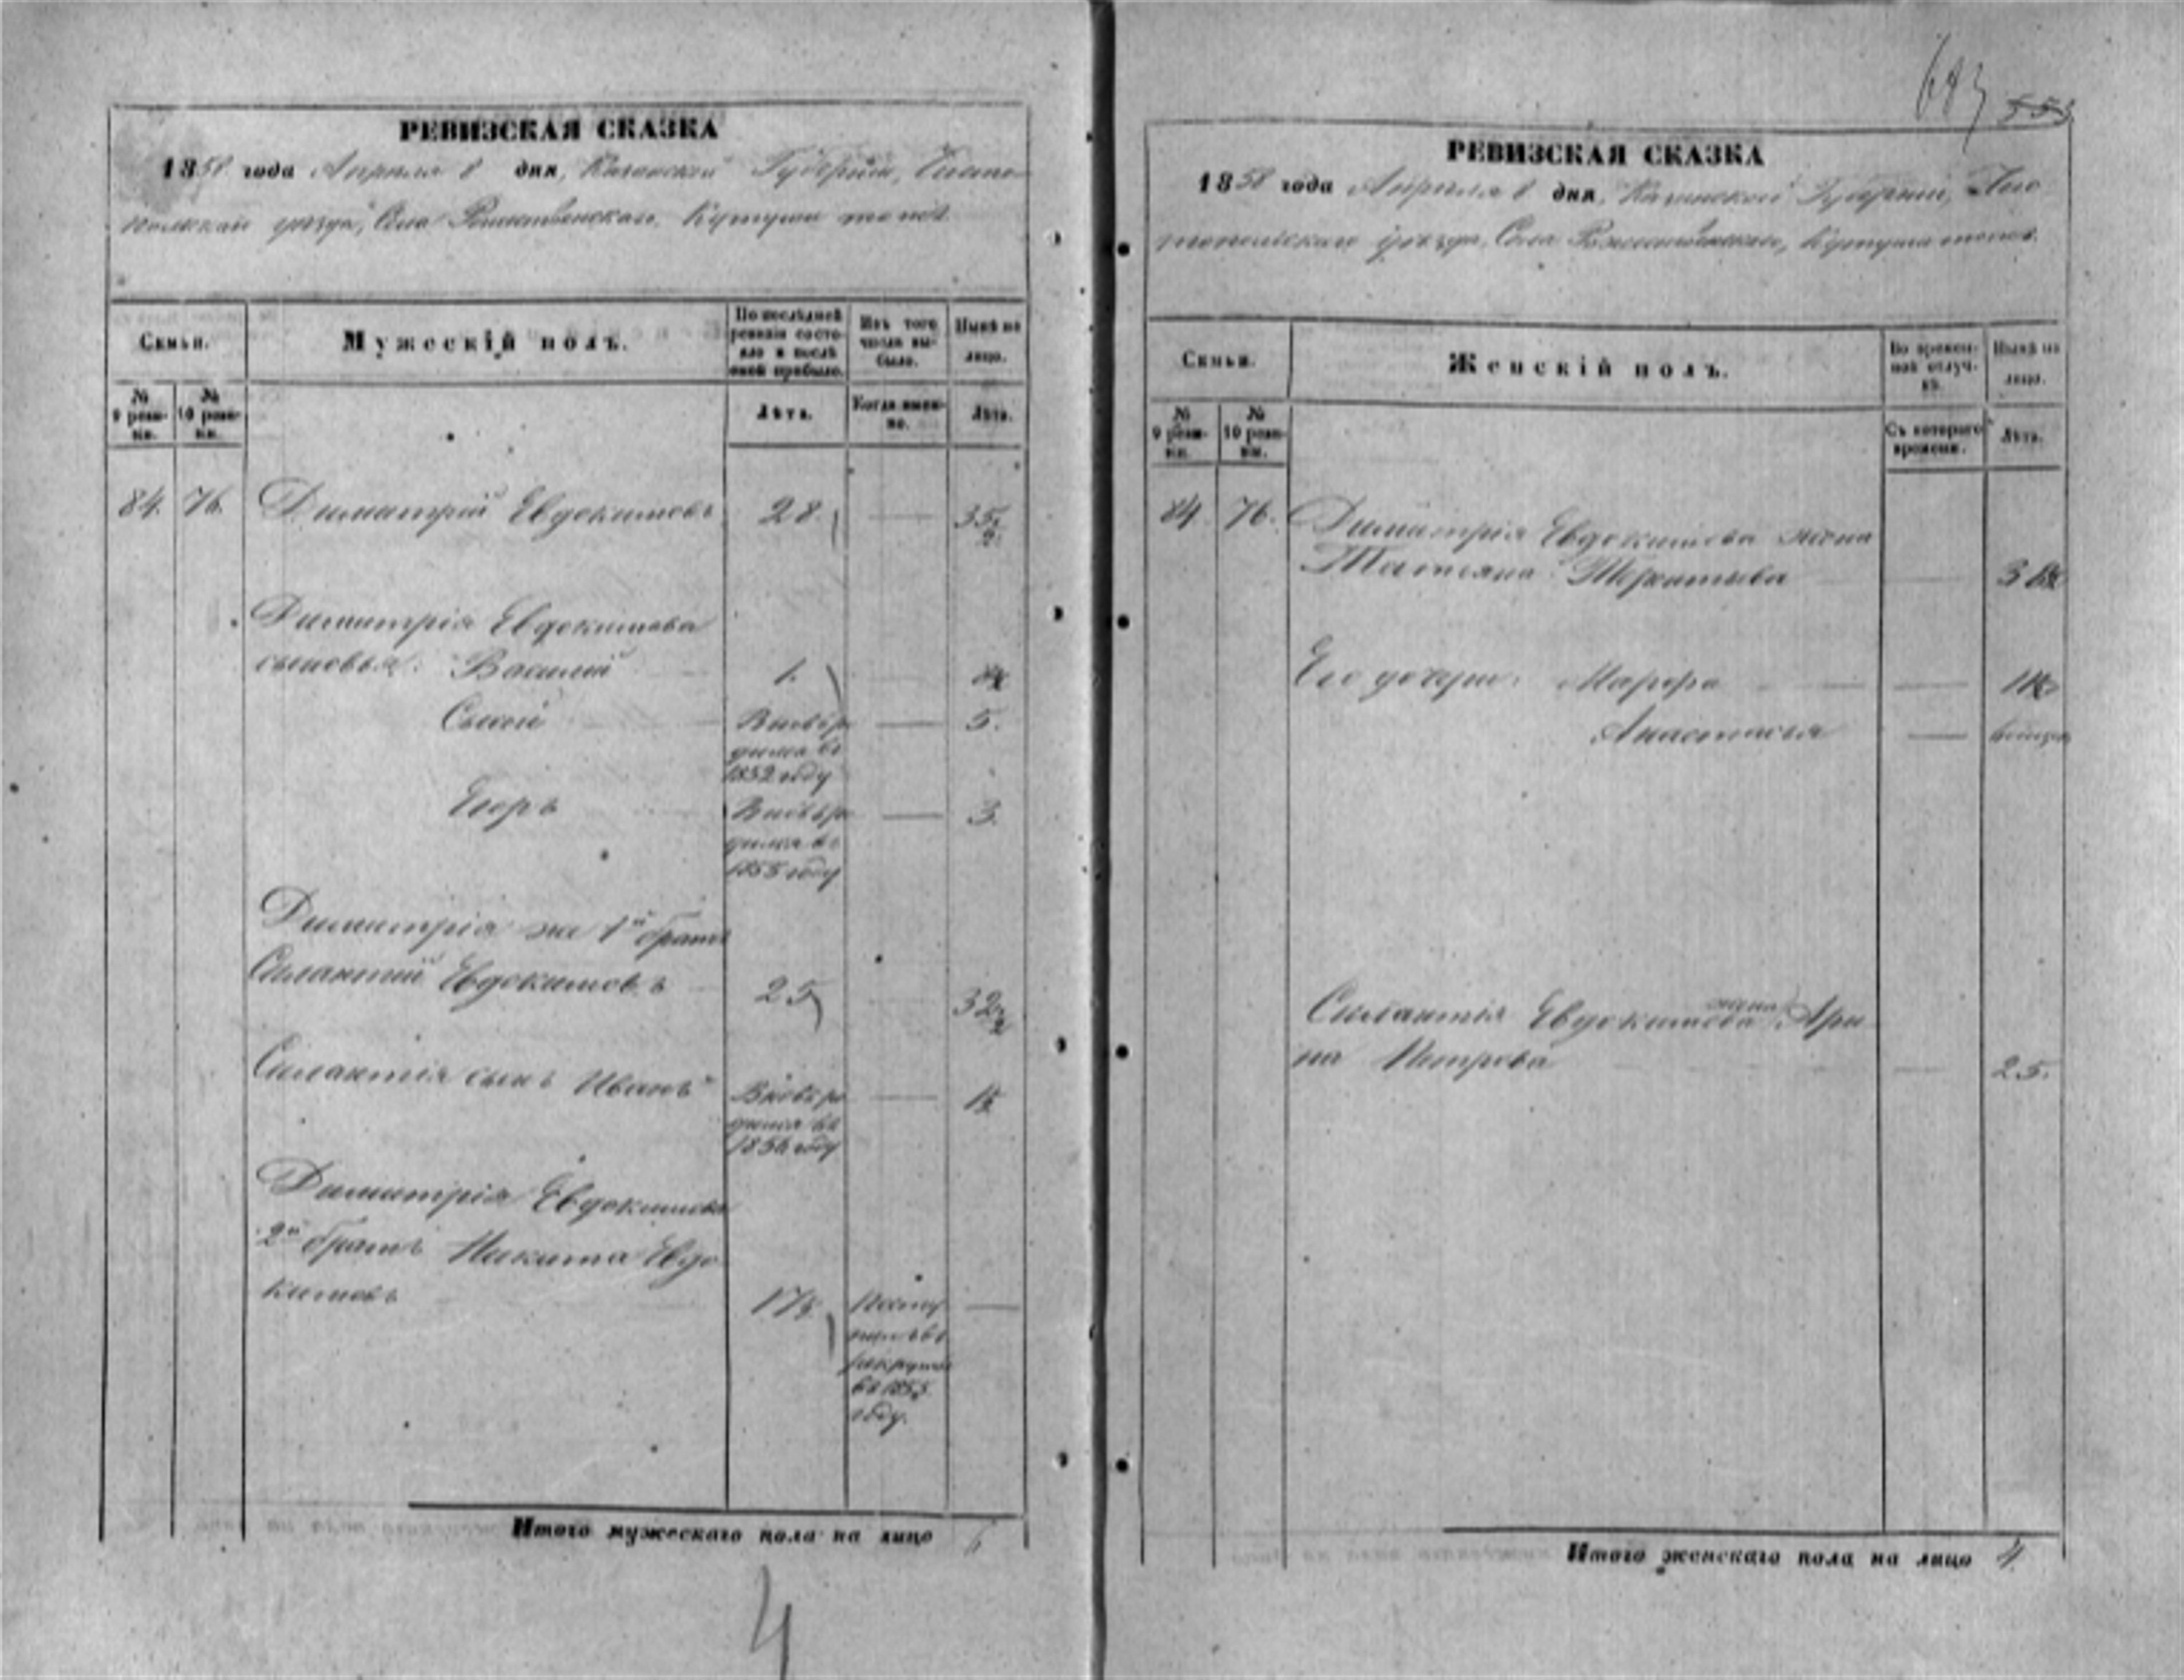 РЕВИЗСКАЯ СКАЗКА
1858 года Апреля 8 дня, Казанской Губернии, Чисто-
польскаго уезда, Села Рождественскаго, Кутуша тожъ.
Семьи.
Мужескій полъ.
По послѣдней ревизіи состояло и послѣ оной прибыло.
Изъ того числа выбыло.
Нынѣ на лицо.
№ 9 ревизіи.
№ 10 ревизіи.
Лѣта.
Когда именно.
Лѣта.
84. 76. Димитрій Евдокимовъ 28 — 35½
Димитрія Евдокимова
сыновья: Василій 1.
Сысой Вновь ро — 5.
дился въ
1852 году
Егоръ Вновь ро — 3.
дился въ
1855 году
Димитрія же 1й братъ
Силантій Евдокимовъ 25 32½
Силантія сынъ Иванъ Вновь ро —
дился въ
1856 году
Димитрія Евдокимова
2й братъ Никита Евдо
кимовъ 17½ Посту —
пилъ въ
рекруты
въ 1855
году.
Итого мужескаго пола на лицо 6
4
683 553
РЕВИЗСКАЯ СКАЗКА
1858 года Апреля 8 дня, Казанской Губерніи, Чис
топольскаго уезда, Села Рождественскаго, Кутуша тожъ.
Семьи.
Женскій полъ.
Во временной отлучкѣ.
Нынѣ на лицо.
№ 9 ревизіи.
№ 10 ревизіи.
Съ котораго времени.
Лѣта.
84. 76. Димитрія Евдокимова жена
Татьяна —
Его дочери: Марфа —
Анастасья —
Силантія Евдокимова жена Ари
на Петрова — 25.
Итого женскаго пола на лицо 4.